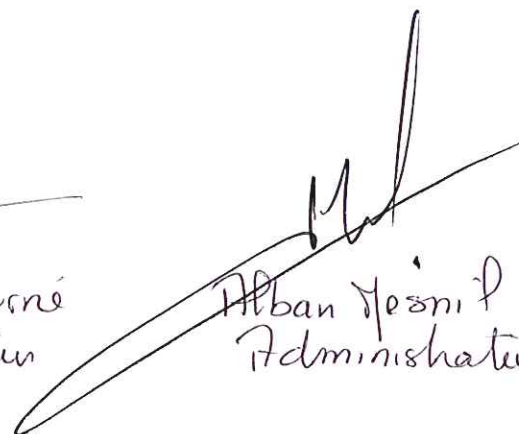 rné
Alban Mesnil
Administrateu